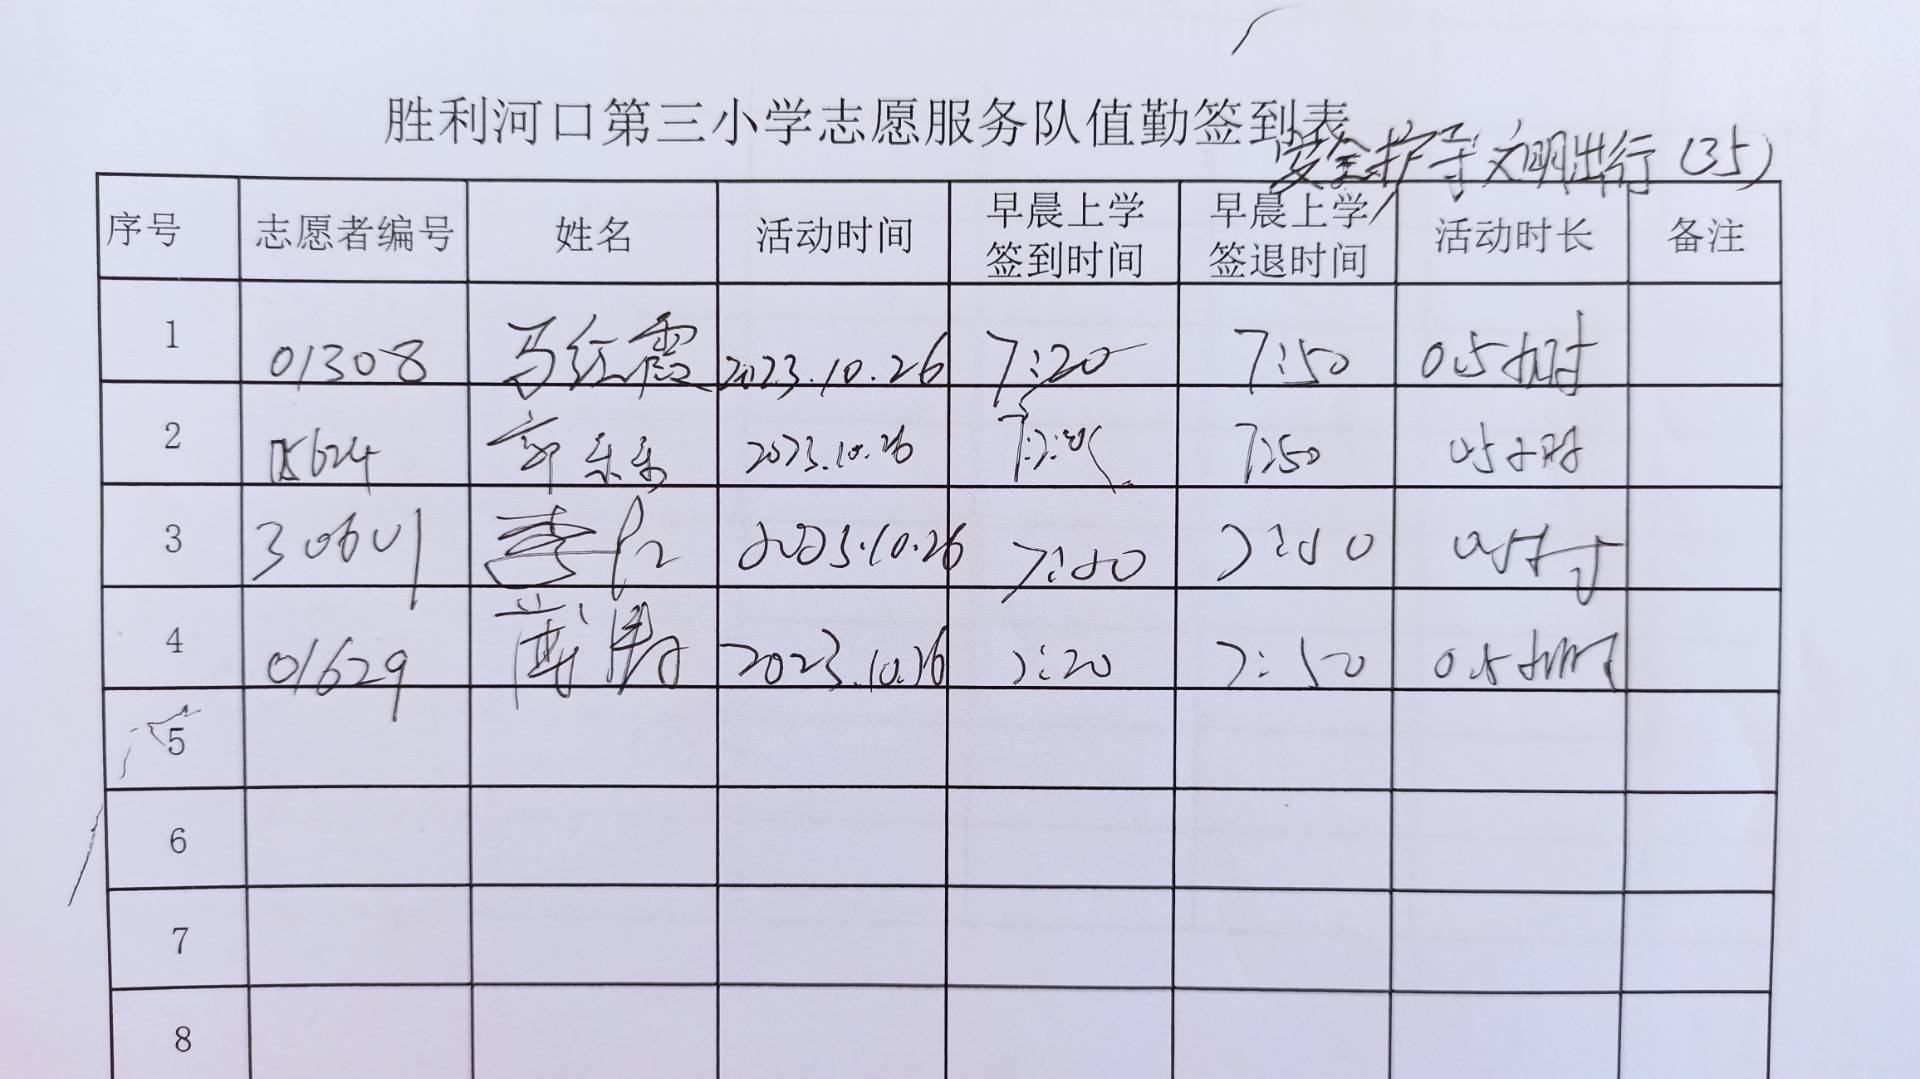 胜利河口第三小学志愿服务队值勤签到表
安全护学 文明出行 (35)
序号 志愿者编号 姓名 活动时间 早晨上学签到时间 早晨上学签退时间 活动时长 备注
1 01308 马红霞 2023.10.26 7:20 7:50 0.5小时
2 郭乐乐 2023.10.26 7:50 0.5小时
3 30601 李 2023.10.26 0.5小时
4 01629 2023.10.26 7:20 7:50 0.5小时
5
6
7
8